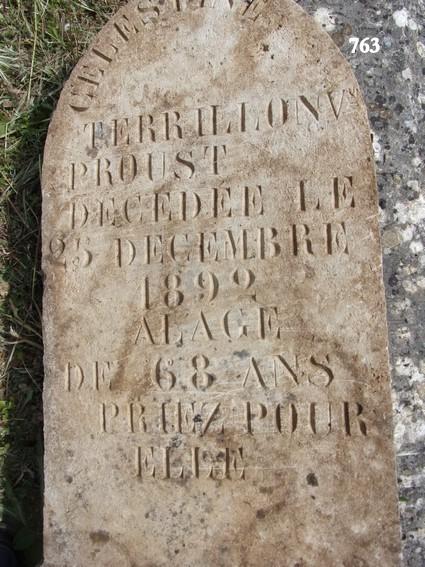 763
CELESTINE
TERRILLON Ve
PROUST
DECEDEE LE
25 DECEMBRE
1892
ALAGE
DE 68 ANS
PRIEZ POUR
ELLE